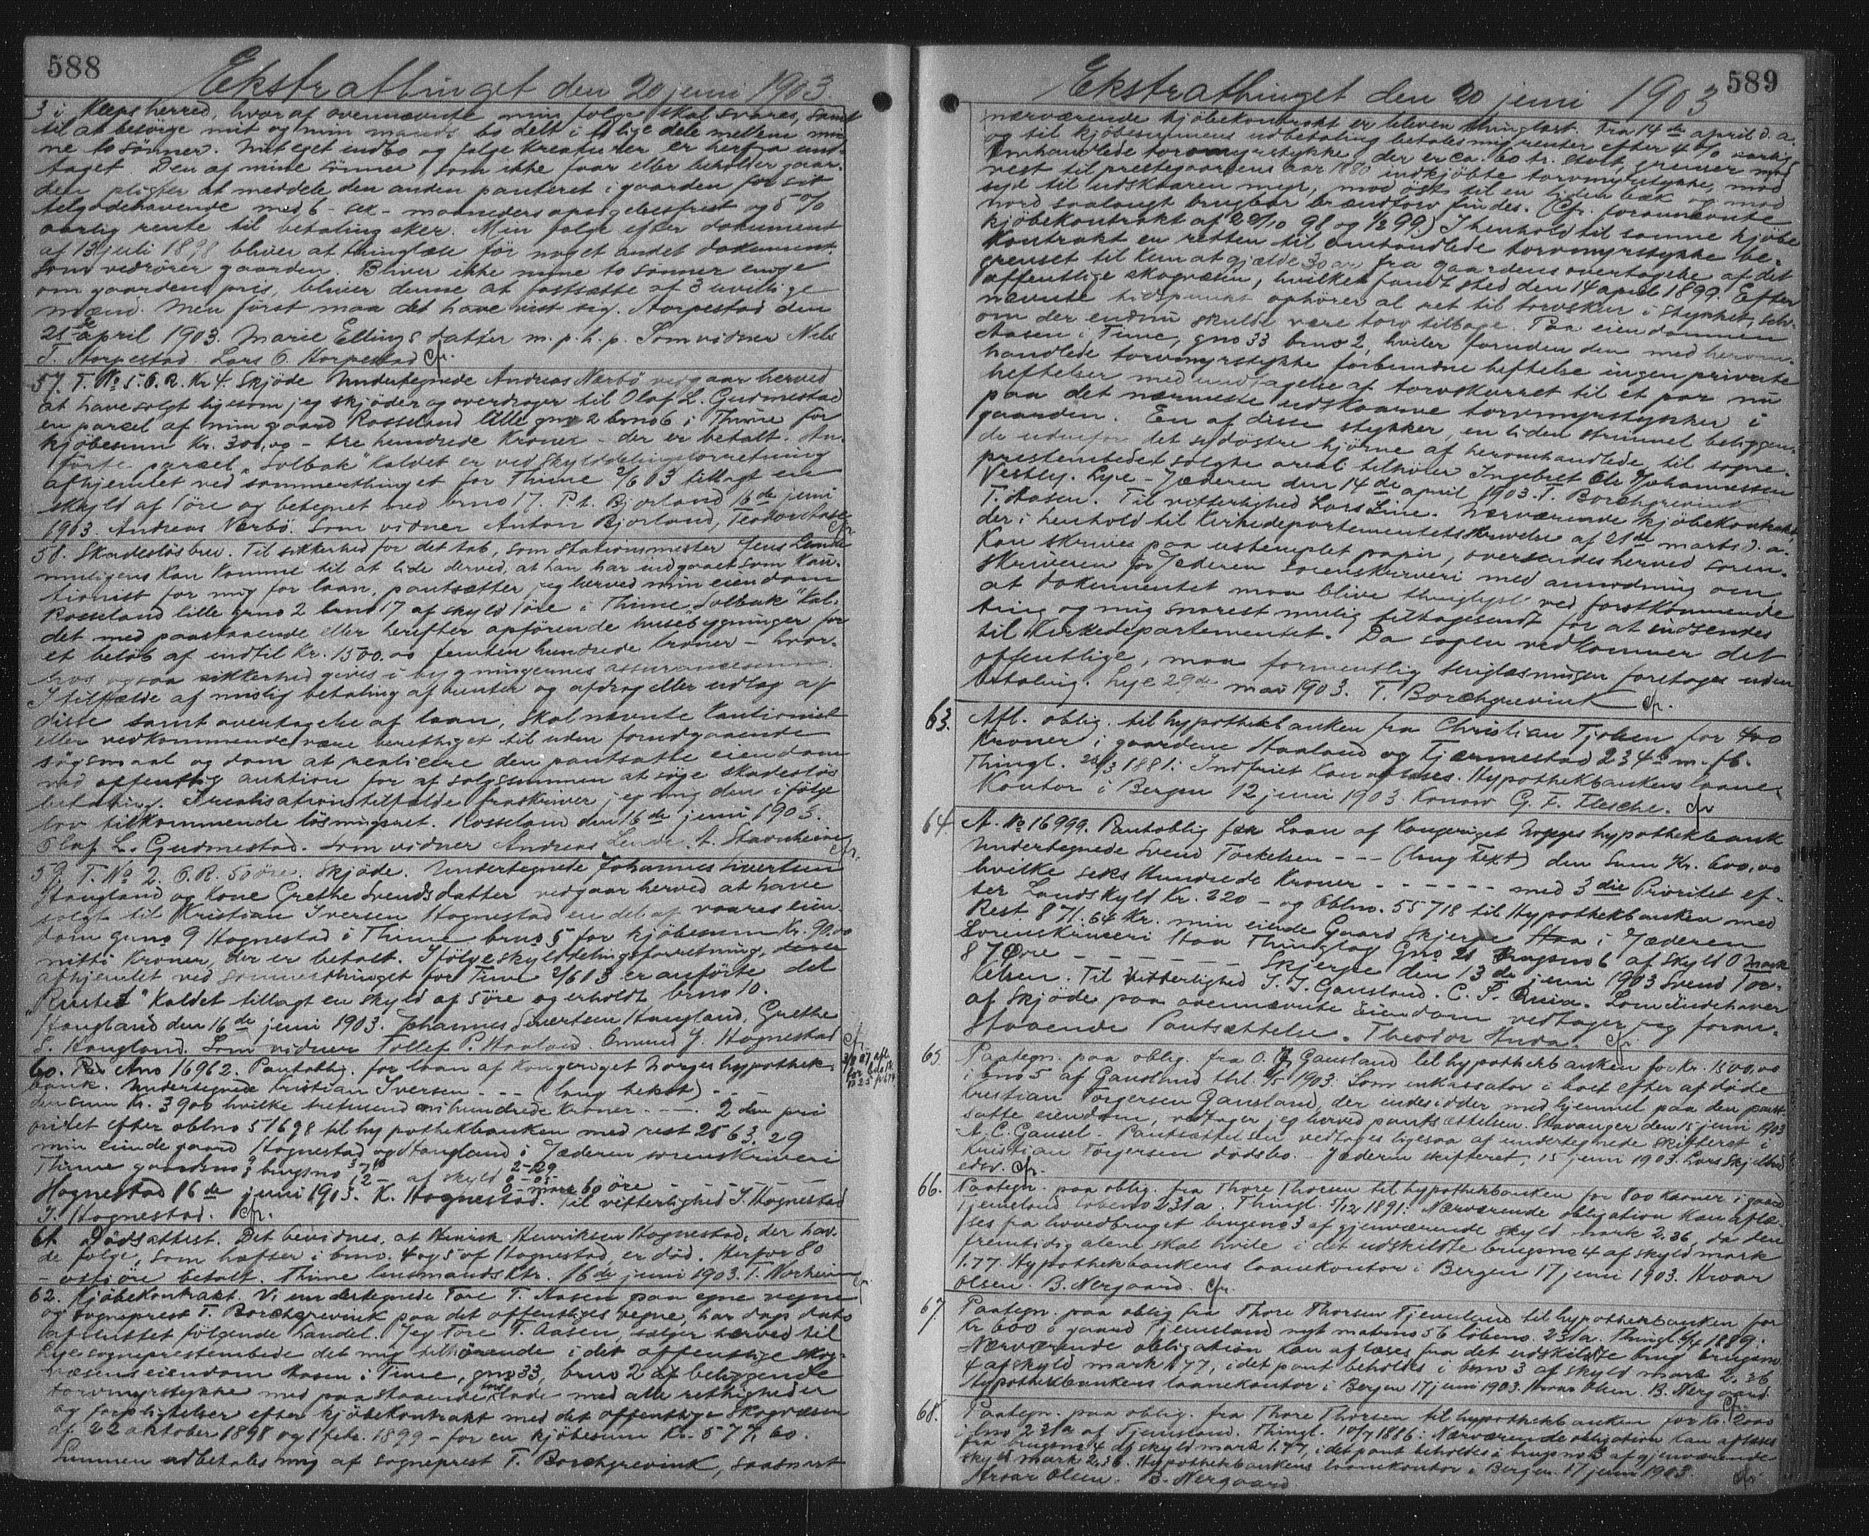 588
Ekstrathinget den 20 juni 1903.
3 i Kleps herred, hvoraf ovennævnte min følge skal svares, samt
til at besørge mit og min mands bo delt i 2 lige dele mellem mi-
ne to sønner. Mit eget indbo og følge kreaturer er herfra und-
taget. Den af mine sønner, som ikke faar eller beholder gaar-
den pligter at meddele den anden panteret i gaarden for sit
tilgodehavende med 6 - sex - maaneders opsigelsesfrist og 5 %
aarlig rente til betaling sker. Min følge efter dokument
af 13 juli 1898 bliver at thinglæse før noget andet dokument
som vedrører gaarden. Bliver ikke mine to sønner enige
om gaardens pris, bliver denne at fastsætte af 3 uvillige
mænd. Men først maa det have vist sig. Horpestad den
21de april 1903. Marie Ellings datter m. p. h. p. Som vidner Nils
T. Horpestad. Lars O. Horpestad Cfr.
57. T. No 5. 6. R. Kr 4. Skjøde. Undertegnede Andreas Nærbø vedgaar herved
at have solgt ligesom jeg skjøder og overdrager til Olaf L. Gudmestad
en parcel af min gaard Rosseland lille gno 2 brno 6 i Thime for
kjøbesum Kr. 300,00 - tre hundrede Kroner - der er betalt. An-
førte parcel "Solbak" kaldet er ved skylddelingsforretning
afhjemlet ved sommerthinget for Thime 2/6 03 tillagt en
skyld af 1 øre og betegnet med brno 17. P. t. Bjorland 16de juni
1903 Andreas Nærbø. Som vidner Anton Bjorland, Teodor Aase
Cfr.
58. Skadesløsbrev. Til sikkerhed for det tab, som Stationsmester Jens Lende
muligens kan komme til at lide derved, at han har indgaaet som kau-
tionist for mig for laan, pantsætter jeg herved min eiendom
Rosseland lille gno 2 brno 17 af skyld 1 øre i Thime, "Solbak" kal-
det med paastaaende eller herefter opførende husebygninger for
et beløb af indtil Kr. 1500.00 femten hundrede kroner - hvor-
hos ogsaa sikkerhed gives i bygningernes assurancesum.
I tilfælde af mislig betaling af renter og afdrag eller udlæg af
disse samt overtagelse af laan, skal nævnte kautionist
eller vedkommende være berettiget til uden forudgaaende
søgsmaal og dom at realisere den pantsatte eiendom
ved offentlig auktion for af salgssummen at søge skadesløs
betaling. I realisationstilfælde fraskriver jeg mig den ifølge
lov tilkommende løsningsret. Rosseland den 16de juni 1903.
Olaf L. Gudmestad. Som vidner Andreas Lende. A. Stavnheim
Cfr.
59. T. No 2. 6. R. 50 øre. Skjøde. Undertegnede Johannes Sivertsen
Haugland og kone Grethe Svendsdatter vedgaar herved at have
solgt til Kristian Iversen Hognestad en del af vaares eien-
dom gno 9 Hognestad i Thime brno 5 for kjøbesum Kr. 90.00
nitti kroner, der er betalt. Ifølge skylddelingsforretning,
afhjemlet ved sommerthinget for Time 2/6 03 er anførte del
"Rusted" kaldet tillagt en skyld af 5 øre og erholdt brno 10.
Haugland den 16de juni 1903. Johannes Sivertsen Haugland. Grethe
S. Haugland. Som vidner Tollef P. Haaland. Omund J. Hognestad
Cfr.
60. Ano 16962. Pantoblig. for laan af Kongeriget Norges hypothek-
bank. Undertegnede Kristian Iversen - - - (lang tekst) - - -
den sum Kr. 3900 hvilke tretusend nihundrede Kroner - - - 2 den pri
oritet efter oblno 57698 til hypothekbanken med rest 2563.29
min eiende gaard Hognestad og Haugland i Jæderen sorenskriveri
Thime gaardsno 9 brugsno af skyld
Hognestad 16de juni 1903. K. Hognestad. Til vitterlighed I. Hognestad
J. Hognestad. Cfr.
61. Dødsattest. Det bevidnes, at Henrik Henriksen Hognestad, der hav-
de følge, som hæfter i brno 4 og 5 af Hognestad, er død. Herfor 80
- otti øre betalt. Thime lensmandsktr. 16de juni 1903. T. Norheim
Cfr.
62. Kjøbekontrakt. Vi undertegnede Tore T. Aasen paa egne vegne
og sogneprest T. Borchgrevink paa det offentliges vegne, har dags dato
afsluttet følgende handel. Jeg Tore T. Aasen, sælger herved til
Lye sogneprestembede det mig tilhørende i det offentlige skog-
væsens eiendom Aasen i Time, gno 33, brno 2 af beliggende
torvmyrstykke med paastaaende lade med alle rettigheder
og forpligtelser efter kjøbekontrakt med det offentlige skogvæsen
af 22 oktober 1898 og 1 febr. 1899 - for en kjøbesum Kr. 577,60.
Summen udbetales mig af sogneprest T. Borchgrevink, saasnart
589
Ekstrathinget den 20 juni 1903
nærværende kjøbekontrakt er bleven thinglæst. Fra 14de april d. a.
og til kjøbesummens udbetaling betales mig renter efter 4 % aarlig
Omhandlede torvmyrstykke, der er ca. 60 tr. stort, grenser mod
vest til prestegaardens aar 1880 indkjøbte torvmyrstykke, mod
syd til udskaaren myr, mod øst til en liden bæk og mod
nord saalangt brugbar brændtorv findes. (Cfr. forannævnte
kjøbekontrakt af 22/10 98 og 1/2 99.) I henhold til samme kjøbe
kontrakt er retten til omhandlede torvmyrstykke be-
grenset til kun at gjælde 30 aar fra gaardens overtagelse af det
offentlige skogvæsen, hvilket fandt sted den 14 april 1899. Efter
nævnte tidspunkt ophører al ret til torvskur i stykket, selv
om der endnu skulde være torv tilbage. Paa eiendommen
Aasen i Time, gno 33 brno 2, hviler foruden den med herom-
handlede torvmyrstykke forbundne heftelse ingen private
heftelser med undtagelse af torvskurret til et par nu
paa det nærmeste udskaarne torvmyrstykker i
gaarden. En af disse stykker, en liden strimmel beliggen-
de udenfor det sydøstre hjørne af heromhandlede til sogne-
prestembedet solgte areal tilhører Ingebret Ole Johannessen
Vestly. Lye - Jæderen den 14de april 1903. T. Borchgrevink
T. Aasen. Til vitterlighed Lars Line. Nærværende kjøbekontrakt
der i henhold til Kirkedepartementets skrivelse af 21de marts d. a.
kan skrives paa ustemplet papir, oversendes herved soren-
skriveren for Jæderen sorenskriveri med anmodning om,
at dokumentet maa blive thinglyst ved førstkommende
ting og mig snarest mulig tilbagesendt for at indsendes
til Kirkedepartementet. Da sagen vedkommer det
offentlige, maa formentlig thinglæsningen foretages uden
betaling. Lye 29de mai 1903. T. Borchgrevink Cfr.
63. Afl. oblig. til hypothekbanken fra Christian Tjølsen for 400
Kroner i gaardene Haaland og Fjærmestad 234b m. fl.
Thingl. 1881. Indfriet kan aflæses. Hypothekbankens laane-
Kontor i Bergen 12 juni 1903. Konow G. F. Flesche. Cfr
64. A. No 16999. Pantoblig for Laan af Kongeriget Norges hypothekbank
Undertegnede Svend Torkelsen - - - (lang Text) den Sum Kr. 600,00
hvilke seks Hundrede Kroner - - - - - - med 3die Prioritet ef-
ter Landskyld Kr. 220 - og Oblno. 55718 til Hypothekbanken med
Rest 871.64 Kr. min eiende Gaard Skjerpe Haa i Jæderen
Sorenskriveri Haa Thinglag Gno 21 Brugsno 6 af Skyld 0 Mark
87 Øre - - - - - - - Skjerpe den 13de juni 1903 Svend Tor-
kelsen. Til Vitterlighed T. T. Gausland. C. T. Som Indehaver
af Skjøde paa ovennævnte Eiendom vedtager jeg foran-
staaende Pantsættelse. Theodor Cfr.
65. Paategn. paa oblig. fra O. G. Gausland til hypothekbanken for Kr. 1500,00
i brno 5 af Gausland thl. 1903. Som inkassator i boet efter afdøde
Kristian Torgersen Gausland, der indesidder med hjemmel paa den pant-
satte eiendom, vedtager jeg herved pantsættelsen. Stavanger den 15 juni 1903
A. C. Gausel. Pantsættelsen vedtages ligesaa af undertegnede skifteret i
Kristian Torgersen dødsbo. Jæderen skifteret, 15 juni 1903. Lars Skjelbred
edsv. Cfr.
66. Paategn. paa oblig. fra Thore Thorsen til hypothekbanken for 800 kroner i gaard
Tjemsland løbeno 231a. Thingl. 1/12 1891. Nærværende obligation kan aflæ-
ses fra hovedbruget brugsno 3 af gjenværende skyld mark 2.36, da den
fremtidig alene skal hvile i det udskilte brugsno 4 af skyld mark
1.77. Hypothekbankens laanekontor i Bergen 17 juni 1903. Hroar
Olsen. B. Nergaard. Cfr.
67. Paategn. paa oblig. fra Thore Thorsen Tjemsland til hypothekbanken for
Kr 600 i gaard Tjemsland nyt matrno 56 løbeno. 231a. Thingl. 1889.
Nærværende obligation kan aflæses fra det udskilte brug brugsno
4 af skyld mark 1.77, idet pant beholdes i brno 3 af skyld mark 2.36
Hypothekbankens laanekontor i Bergen 17 juni 1903. Hroar Olsen. B. Nergaard.
Cfr.
68. Paategn. paa oblig. fra Thore Thorsen til hypothekbanken for Kr. 2000
i brno 231a af Tjemsland. Thingl. 10/7 1886. Nærværende obligation kan aflæses
fra brugsno 4 af skyld mark 1.77, idet pant beholdes i brugsno 3 af gjenværende
skyld mark 2.36. Hypothekbankens laanekontor i Bergen 17 juni 1903.
Hroar Olsen. B. Nergaard Cfr